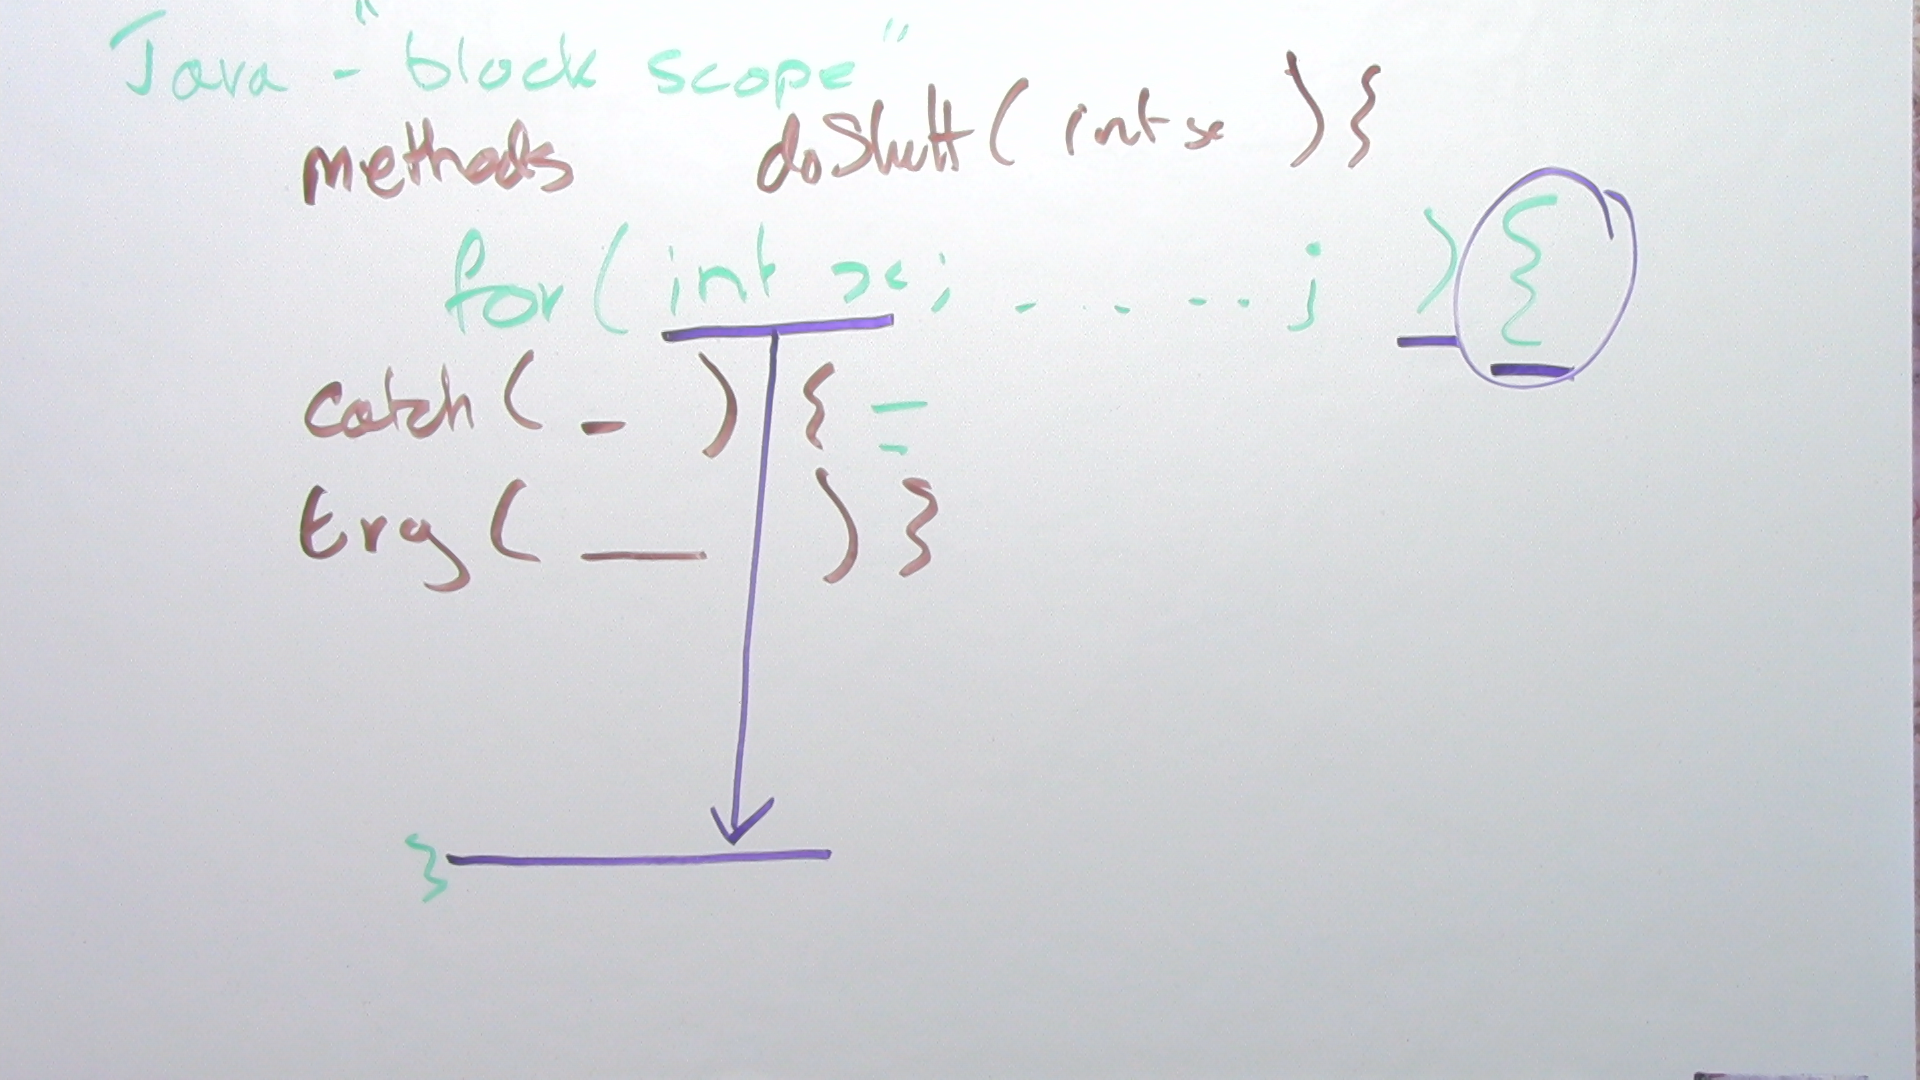 Java - "block scope"
methods doStuff( int x ) {
for( int x ; . . . . . ; ) {
catch( _ ) { =
try( __ ) }
}